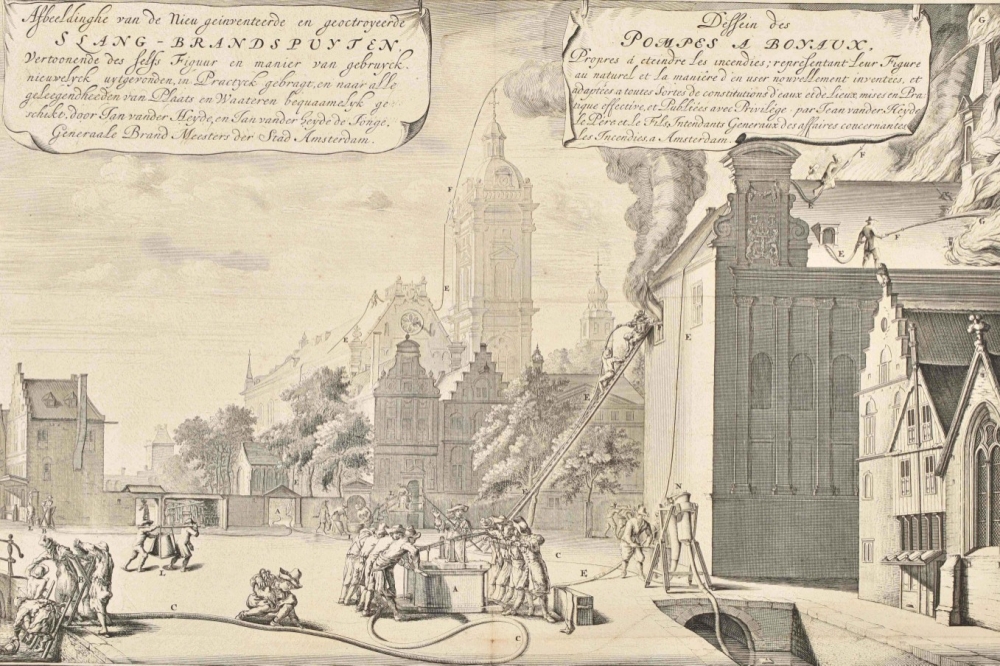 Afbeeldinghe van de Nieu geinventeerde en geoctroyeerde
SLANG-BRANDSPUYTEN,
Vertoonende des selfs Figuur en manier van gebruyck.
nieuwelyck uytgevonden, in Practyck gebragt, en naar alle
geleegendheeden van Plaats en Waateren bequaamelyk ge-
schikt, door Jan vander Heyde, en Jan vander heyde de Jonge.
Generaale Brand Meesters der Stad Amsterdam.
Dessein des
POMPES A BOYAUX,
Propres à éteindre les incendies; représentant leur Figure
au naturel et la maniére d'en user nouvellement inventées, et
adaptées a toutes Sortes de constitutions d'eaux et de Lieux, mises en Pra-
tique effective, et Publiées avec Privilége par Jean vander Heyde
le Pere et le Fils, Intendants Generaux des affaires concernantes
les Incendies, a Amsterdam.
G
F
F
E
F
G
E
E
E
E
N
A
L
C
E
C
A
C